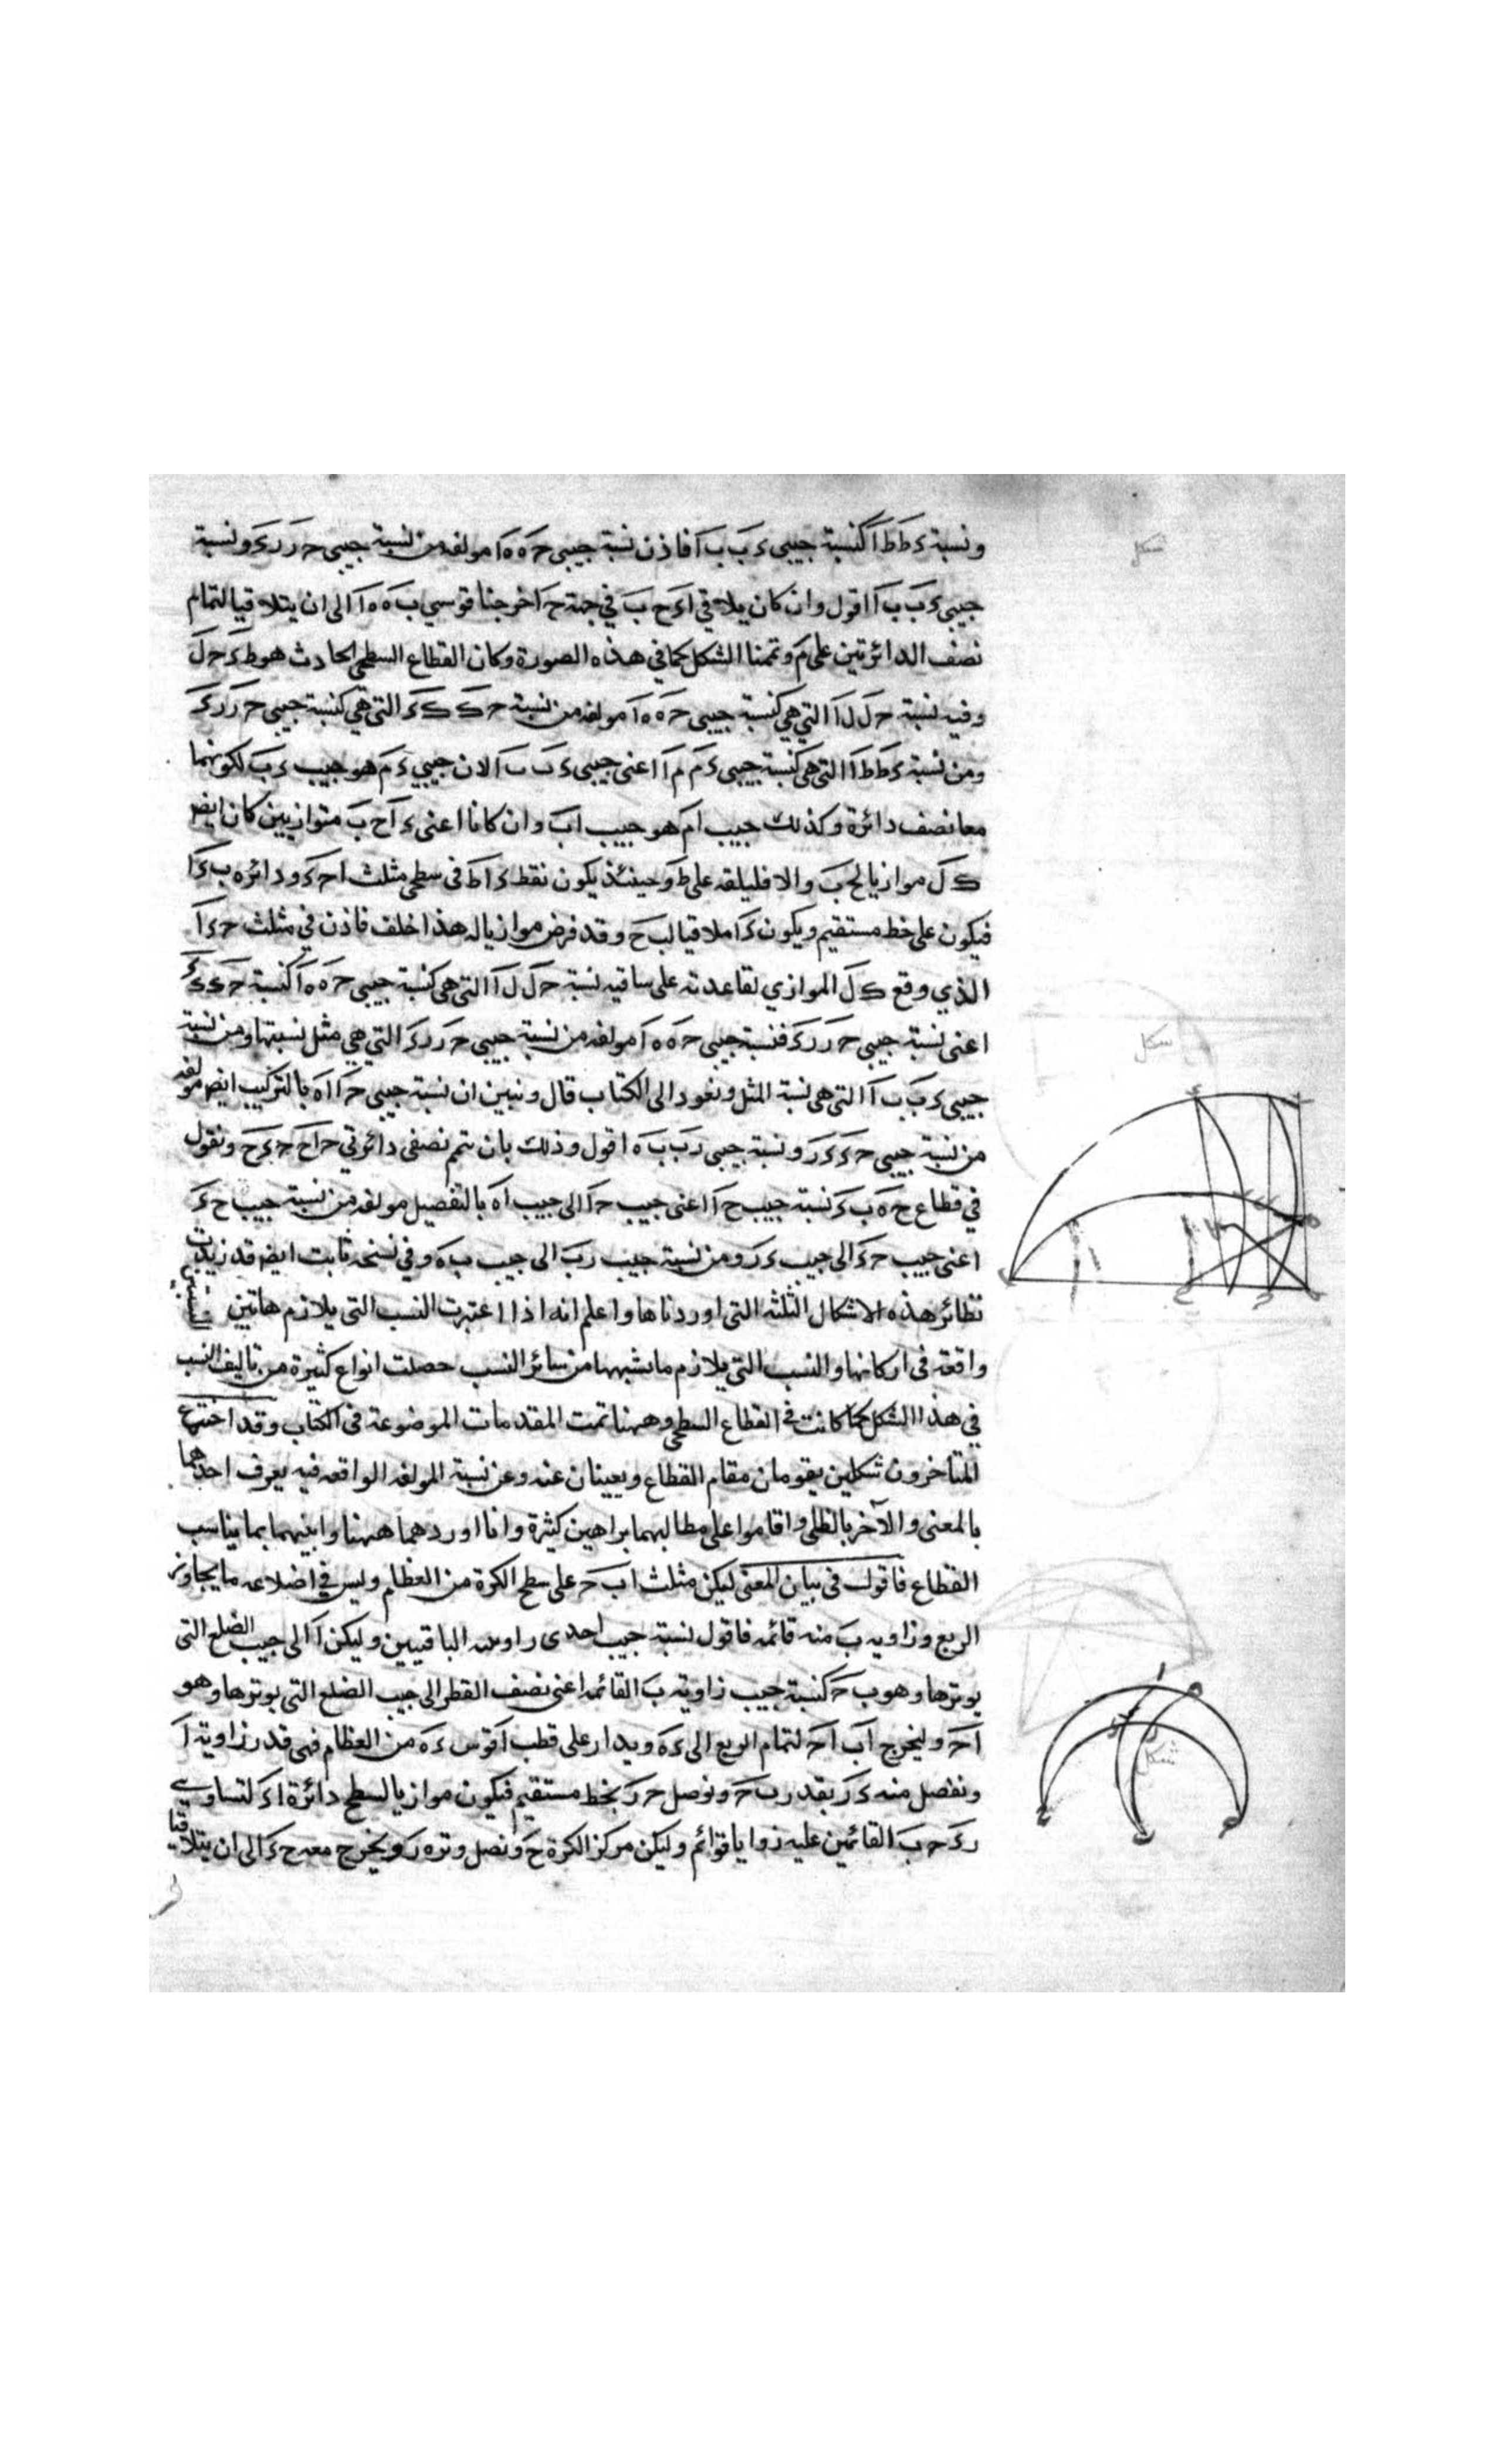 ونسبة ءَ طَ طَ آ كنسبة جيبى ءَ بَ بَ آ فاذن نسبة جيبى حَ ه ه آ مولفه من نسبة جيبى حَ رَ رَ ءَ ونسبة
جيبى ءَ بَ بَ آ اقول وان كان يلاقى اءَ حَ بَ فى جهة حَ اخرجنا قوسى بَ ه ه آ الى ان يتلاقيا لتمام
نصف الدائرتين على مَ وتممنا الشكل كما فى هذه الصورة وكان القطاع السطحى الحادث هو طَ ءَ حَ لَ
وفيه نسبة حَ لَ لَ آ التى هى كنسبة جيبى حَ ه ه آ مولفه من نسبة حَ كَ كَ ءَ التى هى كنسبة جيبى حَ رَ رَ ءَ
ومن نسبة ءَ طَ طَ آ التى هى كنسبة جيبى ءَ مَ مَ آ اعنى جيبى ءَ بَ بَ آ لان جيبى ءَ مَ هو جيب ءَ بَ لكونهما
معا نصف دائرة وكذلك جيب امَ هو جيب ابَ وان كانا اعنى ءَ آ حَ بَ متوازيين كان ايضا
كَ لَ موازيا لحَ بَ والا فليلقه على طَ وحينئذ يكون نقط ءَ ا طَ فى سطحى مثلث احَ ءَ ودائره بَ ءَ آ
فيكون على خط مستقيم ويكون ءَ آ ملاقيا لبَ حَ وقد فرض موازيا له هذا خلف فاذن فى مثلث حَ ءَ آ
الذي وقع كَ لَ الموازي لقاعدته على ساقيه نسبة حَ لَ لَ آ التى هى كنسبة جيبى حَ ه ه آ كنسبة حَ كَ كَ ءَ
اعنى نسبة جيبى حَ رَ رَ ءَ فنسبة جيبى حَ ه ه آ مولفه من نسبة جيبى حَ رَ رَ ءَ التى هى مثل نسبتها ومن نسبة
جيبى ءَ بَ بَ آ التى هى نسبة المثل ونعود الى الكتاب قال ونبين ان نسبة جيبى حَ آ اه بالتركيب ايضا مولفه
من نسبة جيبى حَ ءَ ءَ رَ ونسبة جيبى رَ بَ بَ ه اقول وذلك بان نتم نصفى دائرتي حَ احَ حَ ءَ حَ ونقول
فى قطاع حَ ه بَ ءَ نسبة جيب حَ آ اعنى جيب حَ آ الى جيب اه بالتفصيل مولفه من نسبة جيب حَ ءَ
اعنى جيب حَ ءَ الى جيب ءَ رَ ومن نسبة جيب رَ بَ الى جيب بَ ه وفى نسخه ثابت ايضه قد زيدت
نظائر هذه الاشكال الثلثه التى اوردناها واعلم انه اذا اعتبرت النسب التى يلازم هاتين
واقعه فى اركانها والنسب التى يلازم ما يشبهها من سائر النسب حصلت انواع كثيرة من تاليف النسب
فى هذا الشكل كما كانت فى القطاع السطحى وههنا تمت المقدمات الموضوعة فى الكتاب وقد اخترع
المتاخرون شكلين يقومان مقام القطاع ويعنيان عنه وعن نسبة المولفه الواقعه فيه يعرف احدهما
بالمعنى والآخر بالظلى واقاموا على مطالبهما براهين كثيرة وانا اوردهما ههنا وابينهما بما يناسب
القطاع فاقول فى بيان المعنى ليكن مثلث ابَ حَ على سطح الكرة من العظام وليس فى اضلاعه ما يجاوز
الربع وزاويه بَ منه قائمه فاقول نسبة جيب احدى زاويتيه الباقيتين وليكن آ الى جيب الضلع التى
يوترها وهو بَ حَ كنسبة جيب زاوية بَ القائمه اعنى نصف القطر الى جيب الضلع التى يوترها وهو
احَ وليخرج ابَ احَ لتمام الربع الى ءَ ه ويدار على قطب آ قوس ءَ ه من العظام فهى قدر زاوية آ
ونفصل منه ءَ رَ بقدر بَ حَ ونوصل حَ رَ بخط مستقيم فيكون موازيا لسطح دائرة اءَ لتساوي
رَ ءَ حَ بَ القائمين عليه زوايا قوائم وليكن مركز الكرة حَ ونصل وتر ه رَ ويخرج معه حَ ءَ الى ان يتلاقيا
شكل
شكل
شكل